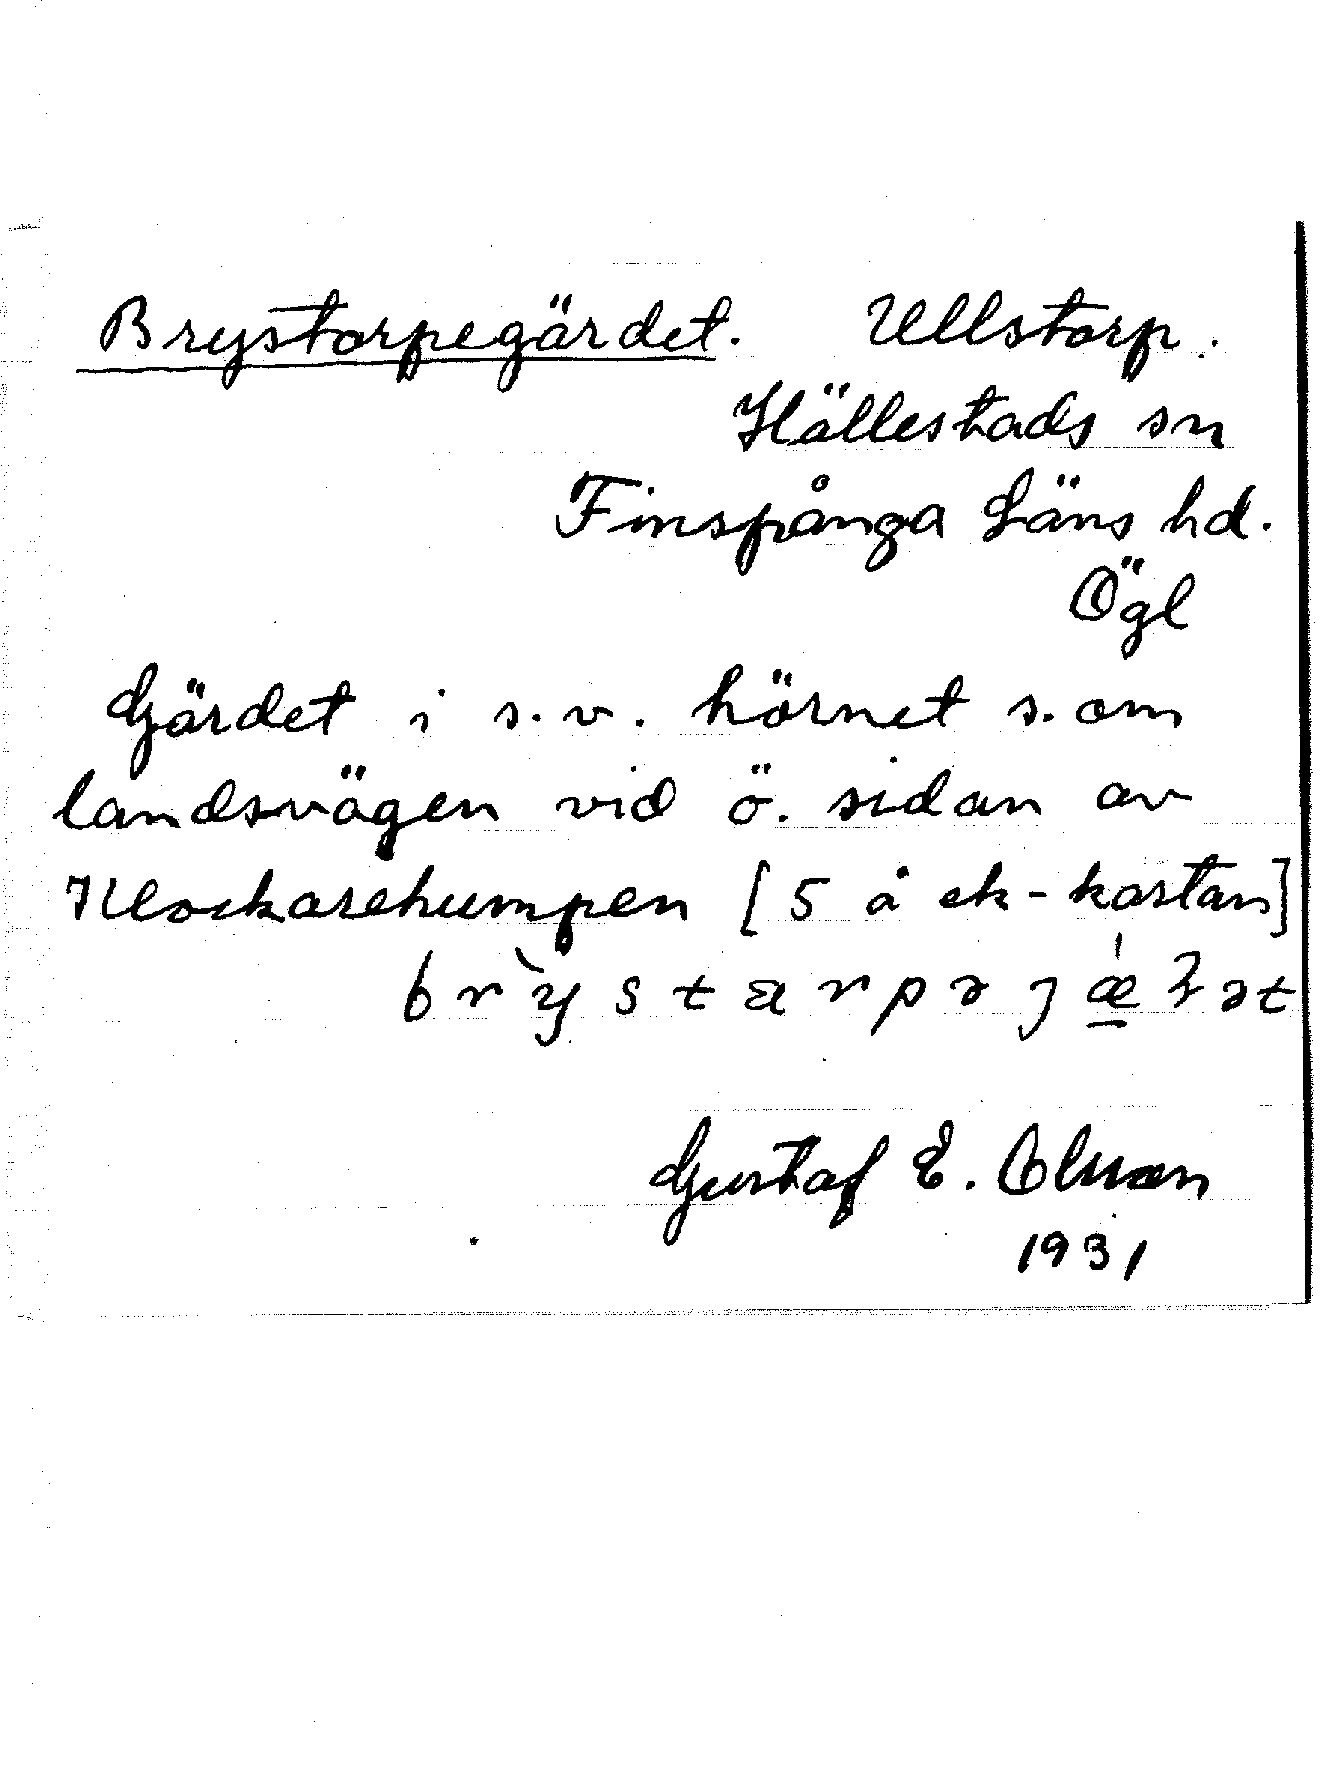 Brystorpegärdet. Ullstorp.
Hällestads sn
Finspånga Läns hd.
Ögl
Gärdet i s.v. hörnet s. om
landsvägen vid ö. sidan av
Klockarehumpen [5 å ek-kartan]
Gustaf E.
1931